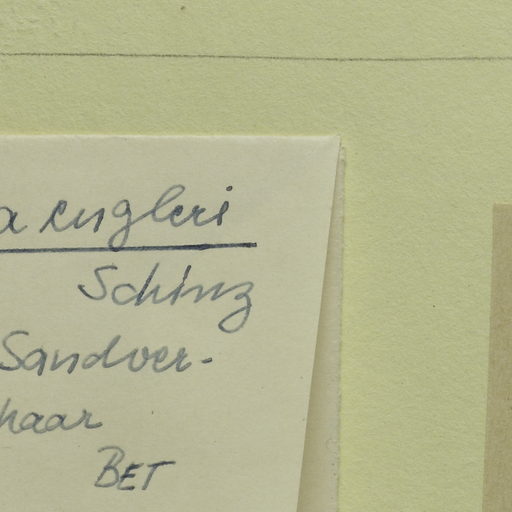 a engleri
Schinz
Sandver-
haar
BET